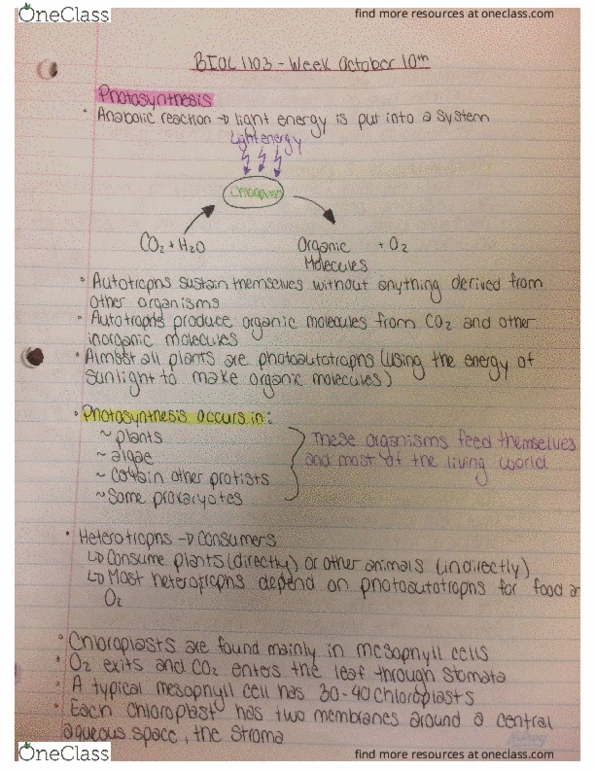 OneClass
find more resources at oneclass.com
BIOL 1103 - Week October 10th
Photosynthesis
• Anabolic reaction → light energy is put into a system
Light energy
CO2 + H2O
Organic + O2
Molecules
• Autotrophs sustain themselves without anything derived from
other organisms
• Autotrophs produce organic molecules from CO2 and other
inorganic molecules
• Almost all plants are photoautotrophs (using the energy of
sunlight to make organic molecules)
• Photosynthesis occurs in:
~ plants
~ algae
~ certain other protists
~ Some prokaryotes
These organisms feed themselves
and most of the living world
• Heterotrophs → Consumers
↳ Consume plants (directly) or other animals (indirectly)
↳ Most heterotrophs depend on photoautotrophs for food a
O2
• Chloroplasts are found mainly in mesophyll cells
• O2 exits and CO2 enters the leaf through stomata
• A typical mesophyll cell has 30-40 chloroplasts
• Each chloroplast has two membranes around a central
aqueous space, the stroma
OneClass
find more resources at oneclass.com